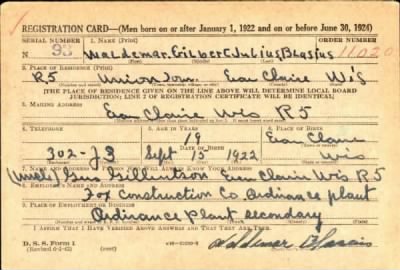 REGISTRATION CARD—(Men born on or after January 1, 1922 and on or before June 30, 1924)
SERIAL NUMBER 1. NAME (Print) ORDER NUMBER
N 93 Waldemar Gilbert Julius Blasius 11020
(First) (Middle) (Last)
2. PLACE OF RESIDENCE (Print)
R5 Union Town Eau Claire Wis
(County) (State)
[THE PLACE OF RESIDENCE GIVEN ON THE LINE ABOVE WILL DETERMINE LOCAL BOARD
JURISDICTION; LINE 2 OF REGISTRATION CERTIFICATE WILL BE IDENTICAL]
3. MAILING ADDRESS
Eau Claire Wis R5
4. TELEPHONE 5. AGE IN YEARS 6. PLACE OF BIRTH
19 Eau Claire
DATE OF BIRTH
302-J3 Sept 15 1922 Wis
(Mo.) (Day) (Yr.)
7. NAME AND ADDRESS OF PERSON WHO WILL ALWAYS KNOW YOUR ADDRESS
Eau Claire Wis R5
8. EMPLOYER'S NAME AND ADDRESS
Construction Co. Ordinance plant
Ordinance Plant secondary
I AFFIRM THAT I HAVE VERIFIED ABOVE ANSWERS AND THAT THEY ARE TRUE.
D. S. S. Form 1
Waldemar Blasius